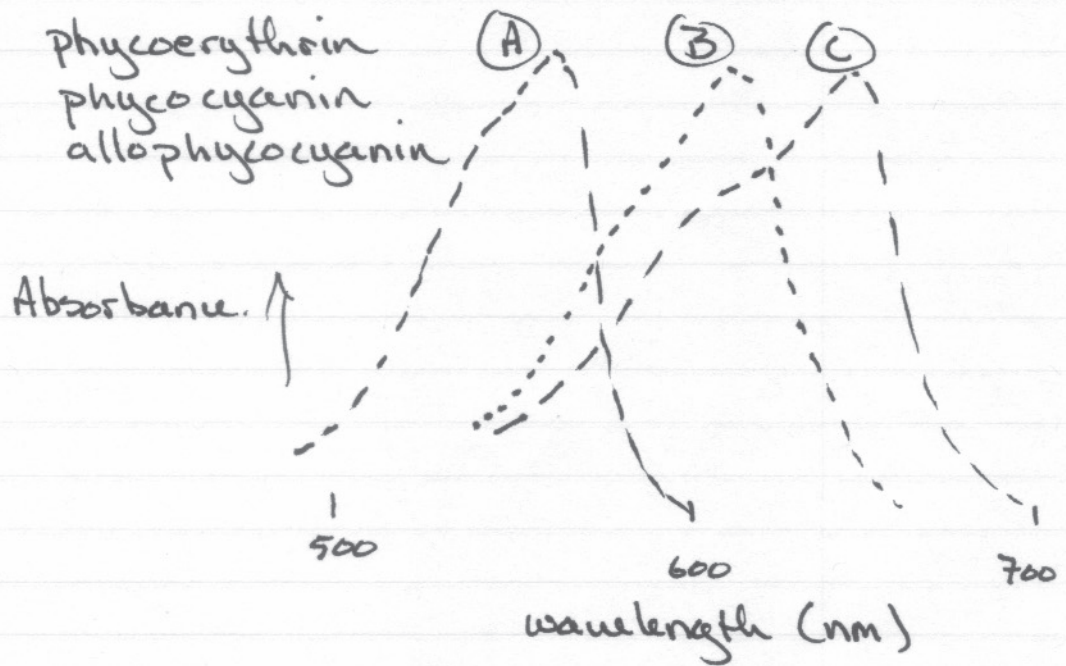 phycoerythrin
phycocyanin
allophycocyanin
A B C
Absorbance.
500 600 700
wavelength (nm)